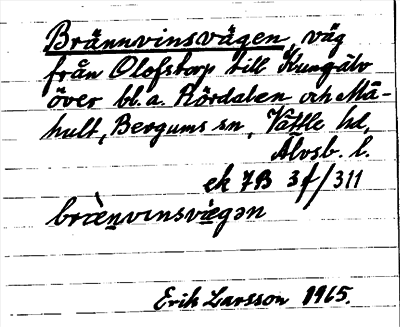 Brännvinsvägen, väg
från Olofstorp till Kungälv
över bl.a. Rördalen och Må-
hult, Bergums sn, Vättle hd,
Älvsb. l.
ek 7B 3f/311
Erik Larsson 1965.